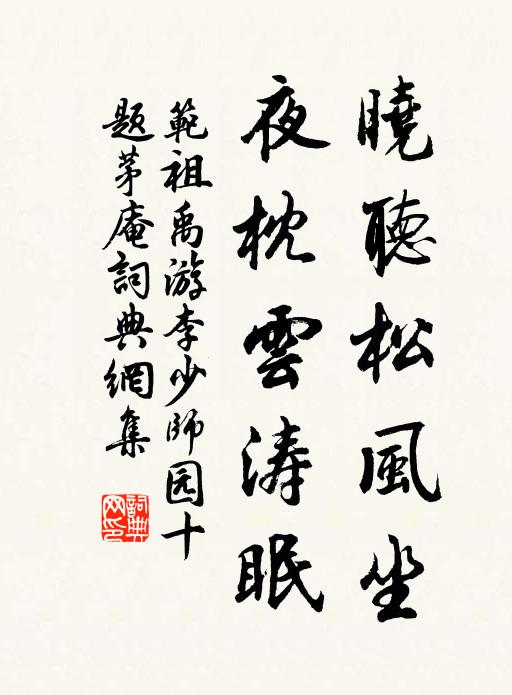 曉聽松風坐
夜枕雲濤眠
範祖禹游李少師园十
題茅庵詞典網集
詞典
网印